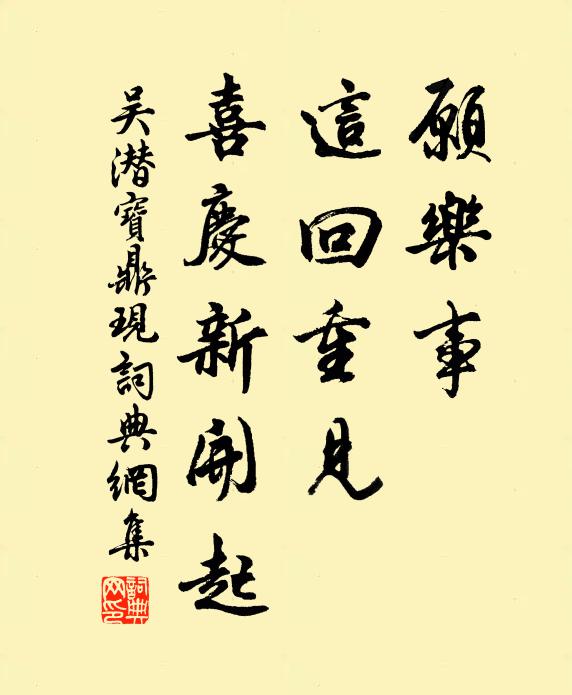 願樂事
這回重見
喜慶新開起
吴潛寶鼎現詞典網集
詞典网印